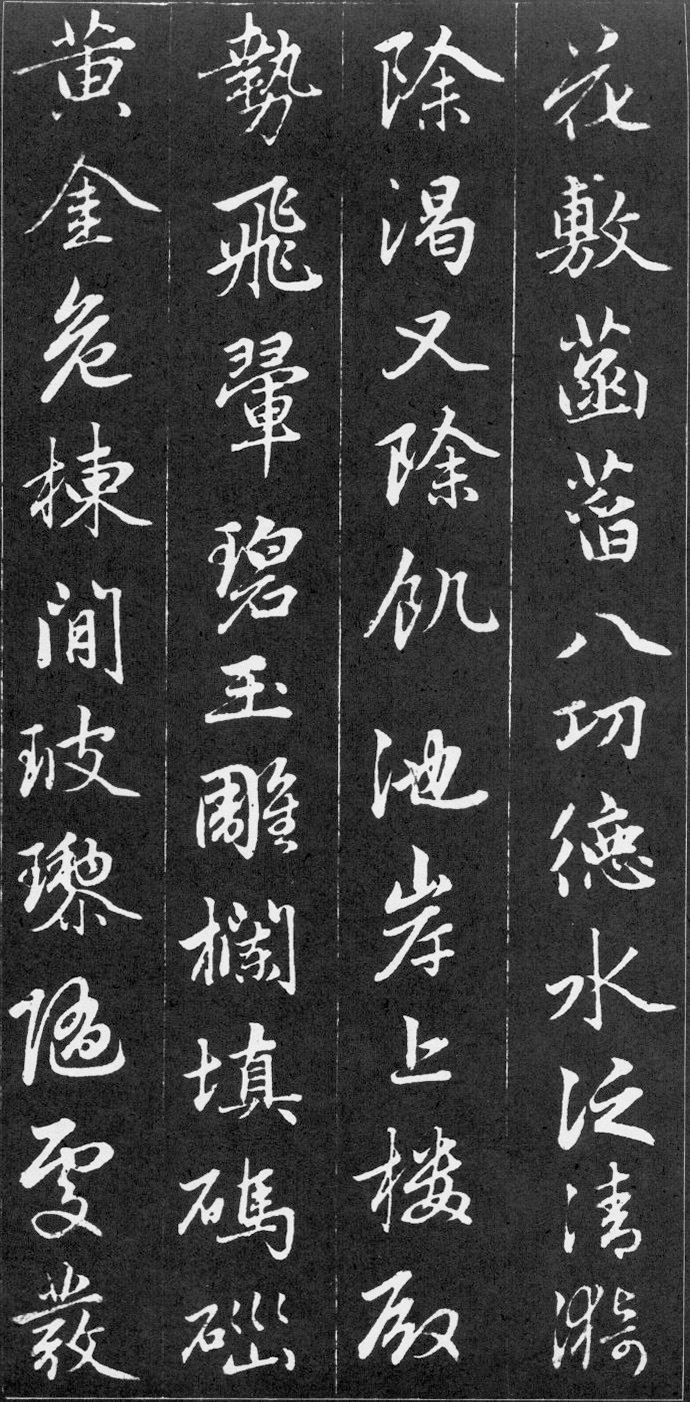 花敷菡萏八功德水泛清漪
除渴又除飢池岸上楼殿
勢飛翬碧玉雕欄填碼碯
黄金危棟間玻瓈隨處發